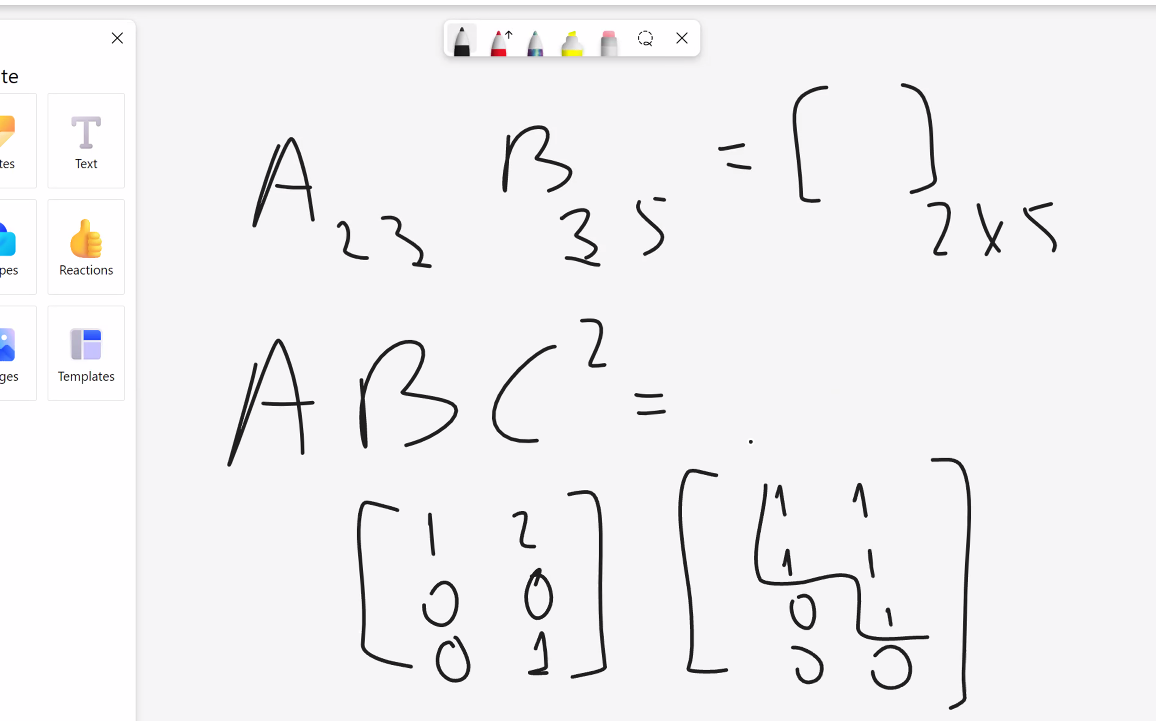 te
tes
Text
pes
Reactions
ges
Templates
A₂₃ B₃₅ = [ ]₂ₓ₅
A B C² =
1 2
0 0
0 1
1 1
1 1
0 1
0 0